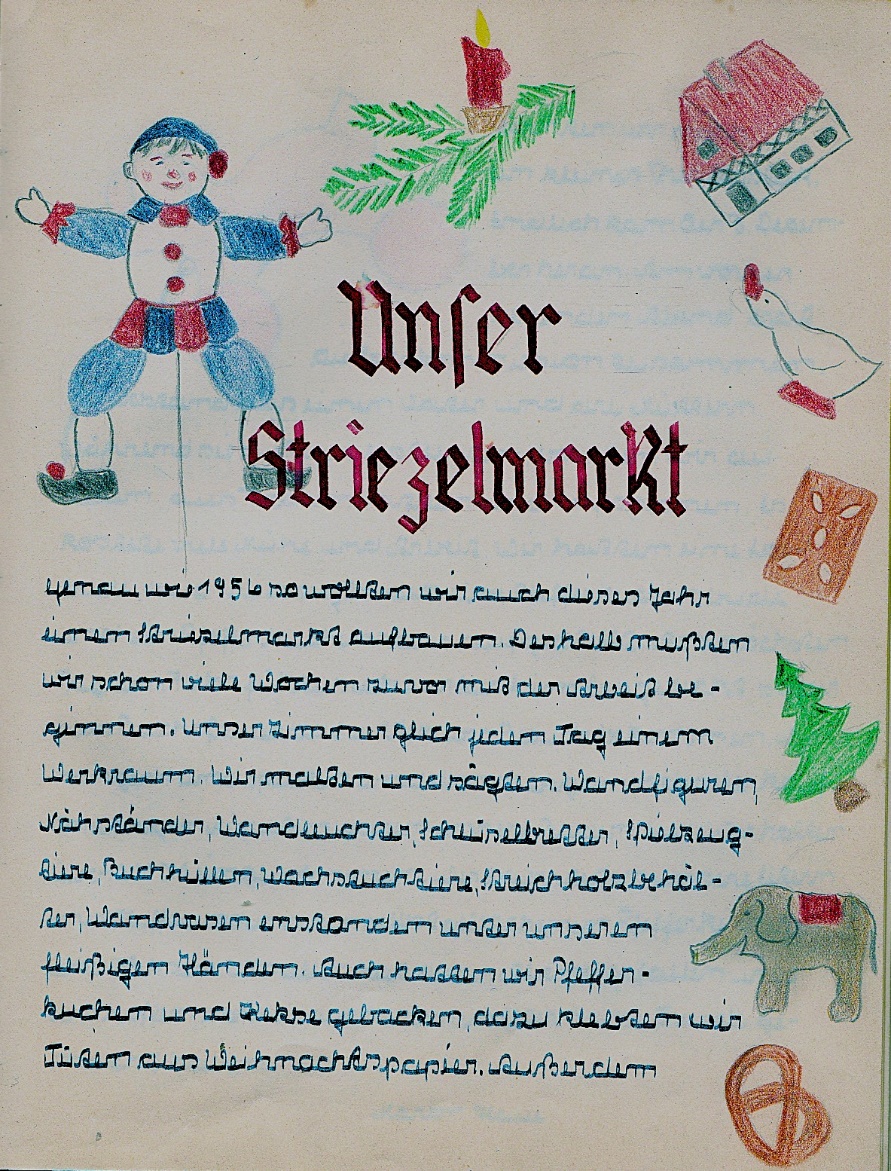 Unser
Striezelmarkt
genau wie 1956 so wollten wir auch dieses Jahr
einen Striezelmarkt aufbauen. Deshalb mußten
wir schon viele Wochen zuvor mit der Arbeit be-
ginnen. Unser Zimmer glich jeden Tag einem
Werkraum. Wir malten und sägten. Wandfiguren,
Nähständer, Wandleuchter, Schlüsselbretter, Spielzeug-
tiere, Buchhüllen, Wachstuchtiere, Streichholzbehäl-
ter, Wandvasen entstanden unter unseren
fleißigen Händen. Auch hatten wir Pfeffer-
kuchen und Kekse gebacken, dazu klebten wir
Tüten aus Weihnachtspapier. Außerdem